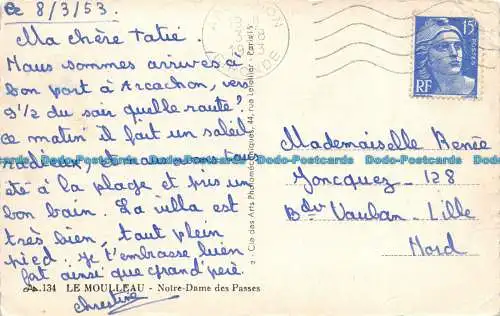 Le 8/3/53
Ma chère Tatie.
Nous sommes arrivés à
bon port à Arcachon, vers
9½ du soir quelle route?
Ce matin il fait un soleil
radieux, et nous avons tous
été à la plage et pris un
bon bain. La villa est
très bien, tout plein
pied. Je t'embrasse bien
fort ainsi que grand'père.
Christine
Mademoiselle Renée
Joncquez - 128
Bd Vauban - Lille
Nord
15F
POSTES
RF
134 LE MOULLEAU - Notre-Dame des Passes
Cie des Arts Photomécaniques, 44, rue Letellier - Paris
Dodo-Postcards Dodo-Postcards Dodo-Postcards Dodo-Postcards Dodo-Postcards